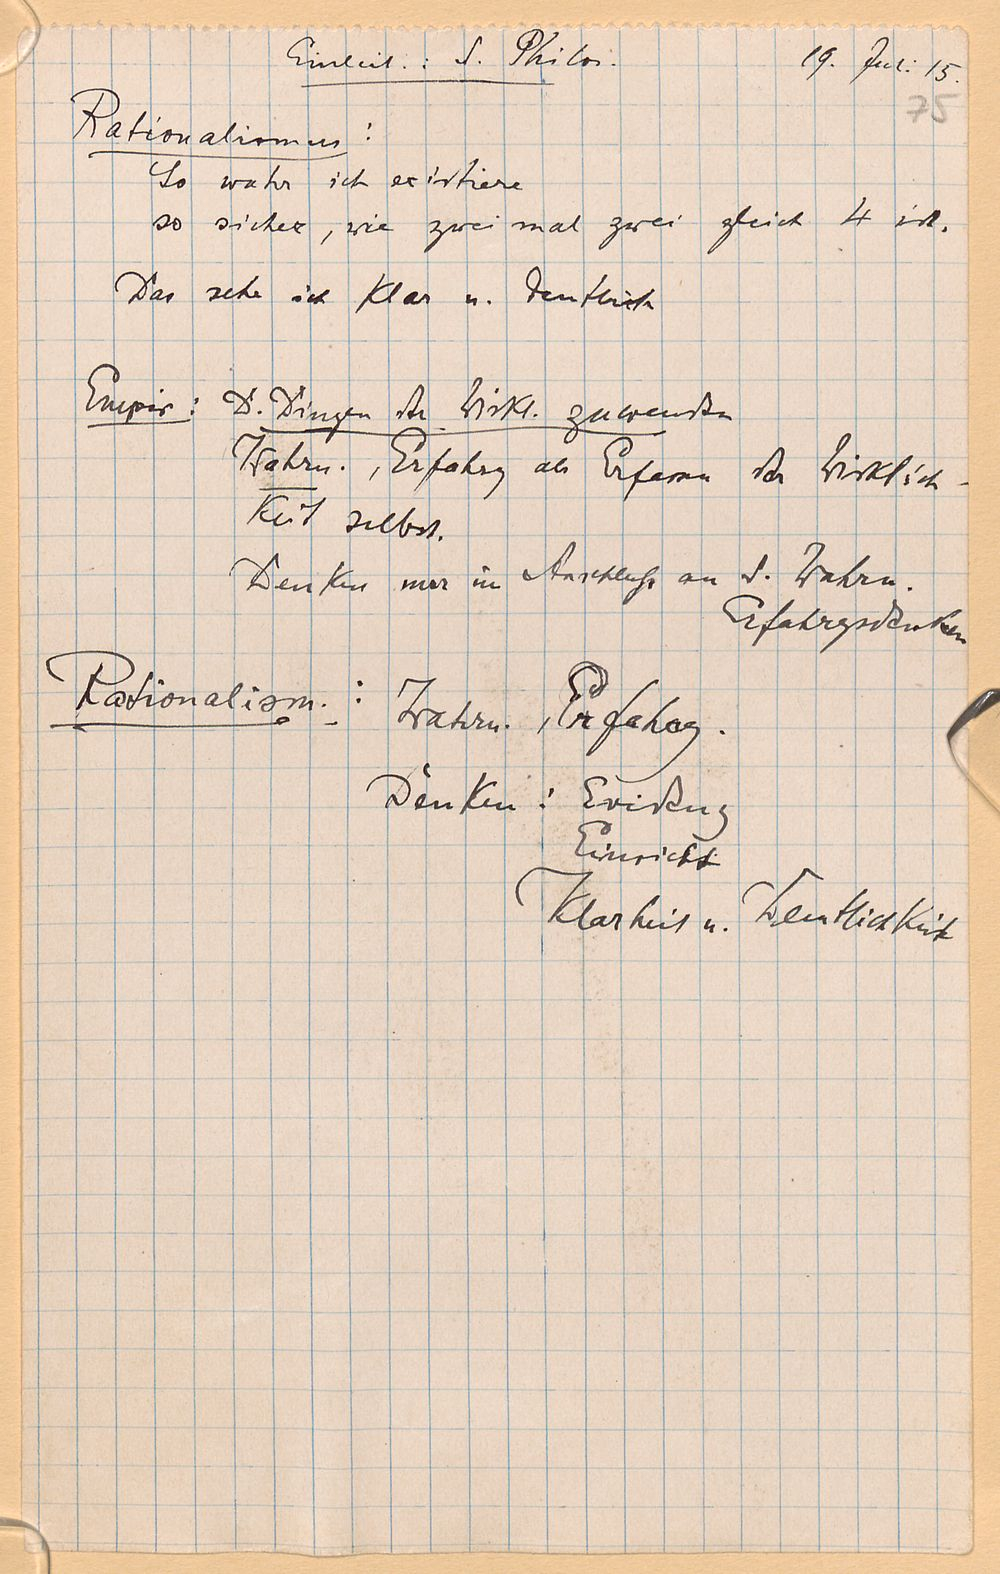 Einleit. : d. Philos. 19. Juli 15.
75
Rationalismus :
So wahr ich existiere
so sicher, wie zwei mal zwei gleich 4 ist.
Das sehe ich klar u. deutlich
Empir : D. Dingen der Wirkl. zuwenden
Wahrn. , Erfahrg als Erfassn der Wirklich-
keit selbst.
Denken nur im Anschluß an d. Wahrn.
Erfahrgsdenken
Rationalism. : Wahrn. , Erfahrg.
Denken : Evidenz
Einsicht
Klarheit u. Deutlichkeit